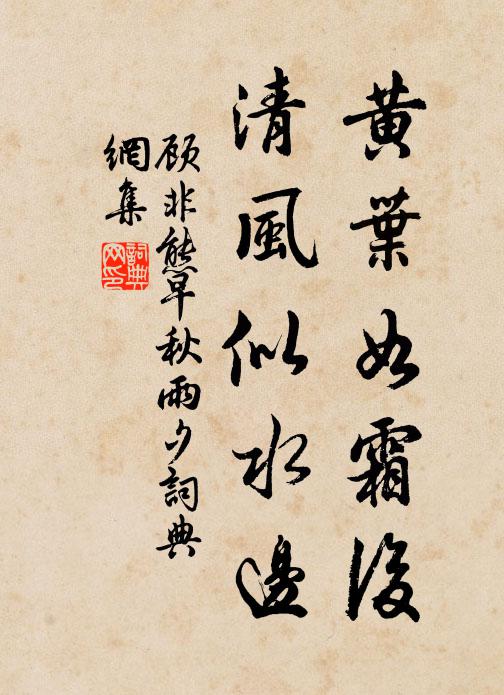 黃葉如霜後
清風似水邊
顧非熊早秋雨夕詞典
網集
詞典
网印